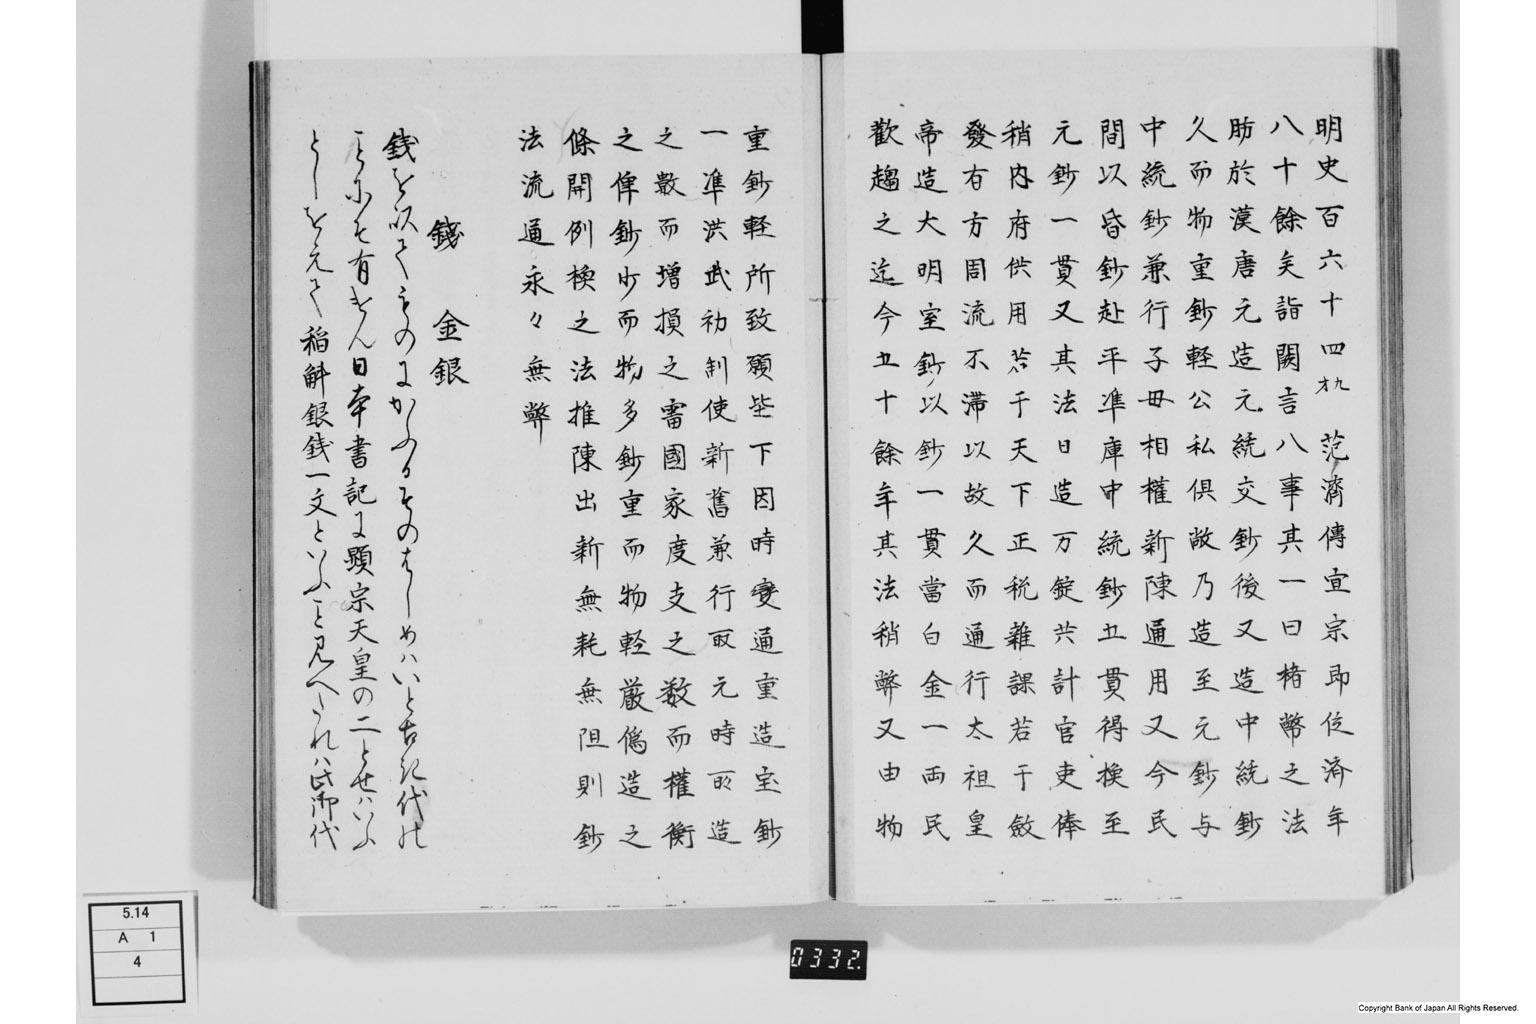 明史百六十四九オ 范濟傳宣宗即位済年
八十餘矣詣闕言八事其一曰楮幣之法
肪於漢唐元造元統交鈔後又造中統鈔
久而物重鈔軽公私倶敝乃造至元鈔与
中統鈔兼行子母相權新陳通用又今民
間以昏鈔赴平凖庫中統鈔五貫得換至
元鈔一貫又其法日造万錠共計官吏俸
稍内府供用若干天下正税雜課若干斂
發有方周流不滞以故久而通行太祖皇
帝造大明宝鈔以鈔一貫當白金一両民
歡趨之迄今五十餘年其法稍弊又由物
重鈔軽所致願陛下因時変通重造宝鈔
一凖洪武初制使新舊兼行取元時所造
之数而増損之審國家度支之数而權衡
之俾鈔少而物多鈔重而物軽厳偽造之
條開例換之法推陳出新無耗無阻則鈔
法流通永々無弊
錢 金銀
銭を以てものにかふるそのはしめハいと古き代の
ことにそ有けん日本書記に顕宗天皇の二とせハいふ
としをえて稲斛銀銭一文といふこと見へたれハ此御代
0332.
5.14
A 1
4
Copyright Bank of Japan All Rights Reserved.